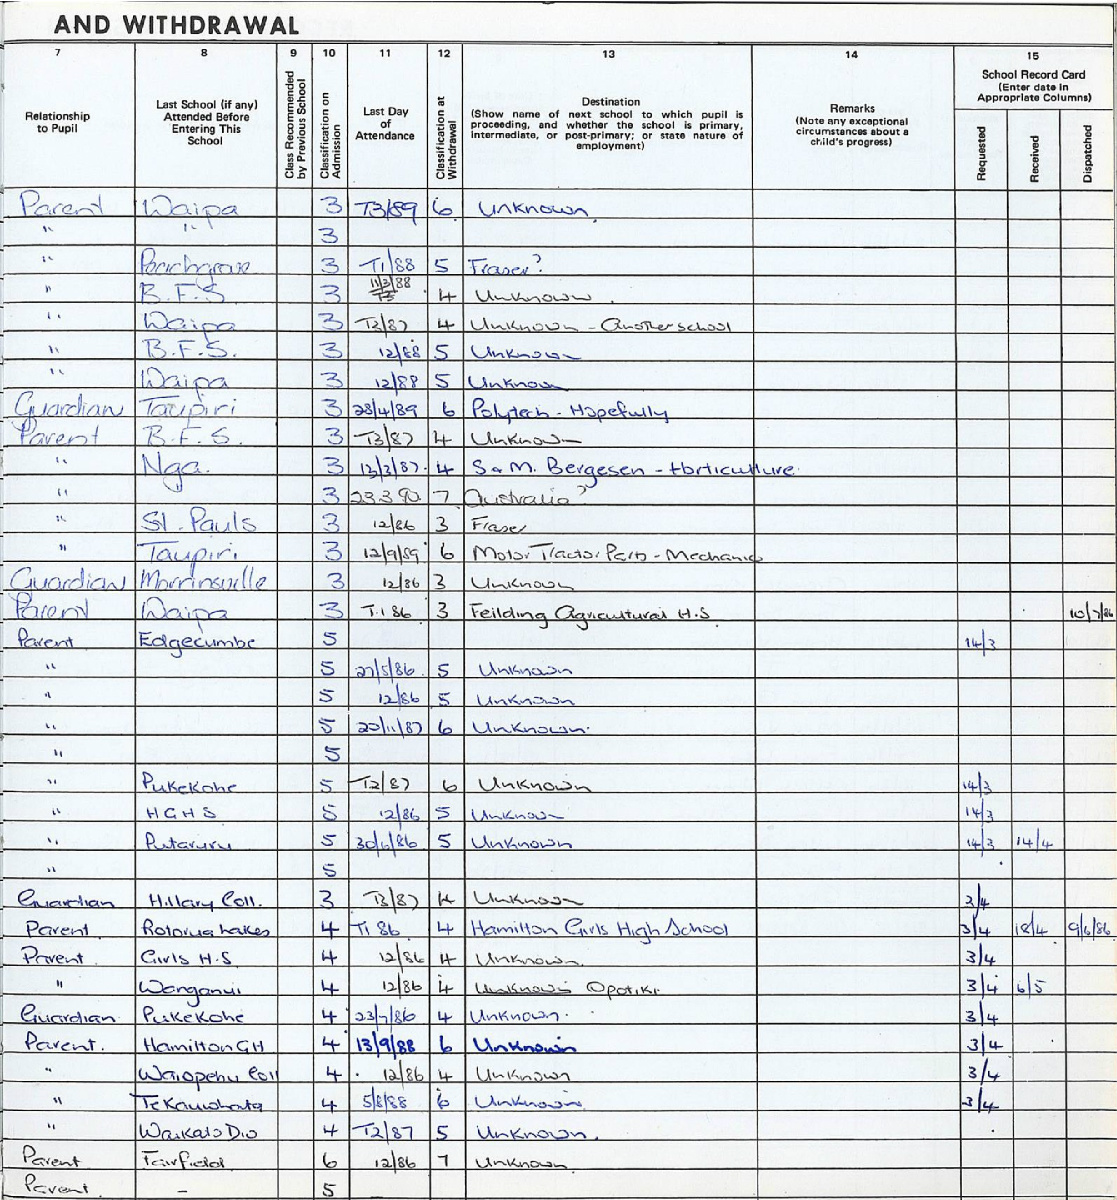 AND WITHDRAWAL
7 8 9 10 11 12 13 14 15
Relationship to Pupil
Last School (if any) Attended Before Entering This School
Class Recommended by Previous School
Classification on Admission
Last Day of Attendance
Classification at Withdrawal
Destination
(Show name of next school to which pupil is proceeding, and whether the school is primary, intermediate, or post-primary; or state nature of employment)
Remarks
(Note any exceptional circumstances about a child's progress)
School Record Card
(Enter date in Appropriate Columns)
Requested
Received
Dispatched
Parent Waipa 3 T3/89 6 Unknown
" " 3
" 3 T1/88 5 Fraser?
" B.F.S. 3 11/3/88 4 Unknown
" Waipa 3 T3/87 4 Unknown - Another school
" B.F.S. 3 12/88 5 Unknown
" Waipa 3 12/88 5 Unknown
Guardian Taupiri 3 28/4/89 6 Polytech - Hopefully
Parent B.F.S. 3 T3/87 4 Unknown
" Nga. 3 13/3/87 4 S & M. Bergesen - Horticulture
" 3 23 3 90 7 Australia?
" St. Pauls 3 12/86 3 Fraser
" Taupiri 3 12/9/89 6 Motor Tractor Parts - Mechanic
Guardian Morrinsville 3 12/86 3 Unknown
Parent Waipa 3 T.1 86 3 Feilding Agricultural H.S. 10/7/86
Parent Edgecumbe 5 14/3
" 5 27/5/86 5 Unknown
" 5 12/86 5 Unknown
" 5 20/11/87 6 Unknown
" 5
" Pukekohe 5 T2/87 6 Unknown 14/3
" HGHS 5 12/86 5 Unknown 14/3
" Putaruru 5 30/6/86 5 Unknown 14/3 14/4
" 5
Guardian Hillary Coll. 3 T3/87 4 Unknown 3/4
Parent Rotorua Lakes 4 T1 86 4 Hamilton Girls High School 3/4 18/4 9/6/86
Parent Girls H.S 4 12/86 4 Unknown 3/4
" Wanganui 4 12/86 4 Unknown Opotiki 3/4 6/5
Guardian Pukekohe 4 23/7/86 4 Unknown 3/4
Parent. Hamilton GH 4 13/9/88 6 Unknown 3/4
" Waiopehu Coll 4 12/86 4 Unknown 3/4
" Te Kauwhata 4 5/8/88 6 Unknown 3/4
" Waikato Dio 4 T2/87 5 Unknown.
Parent Fairfield 6 12/86 7 Unknown
Parent - 5